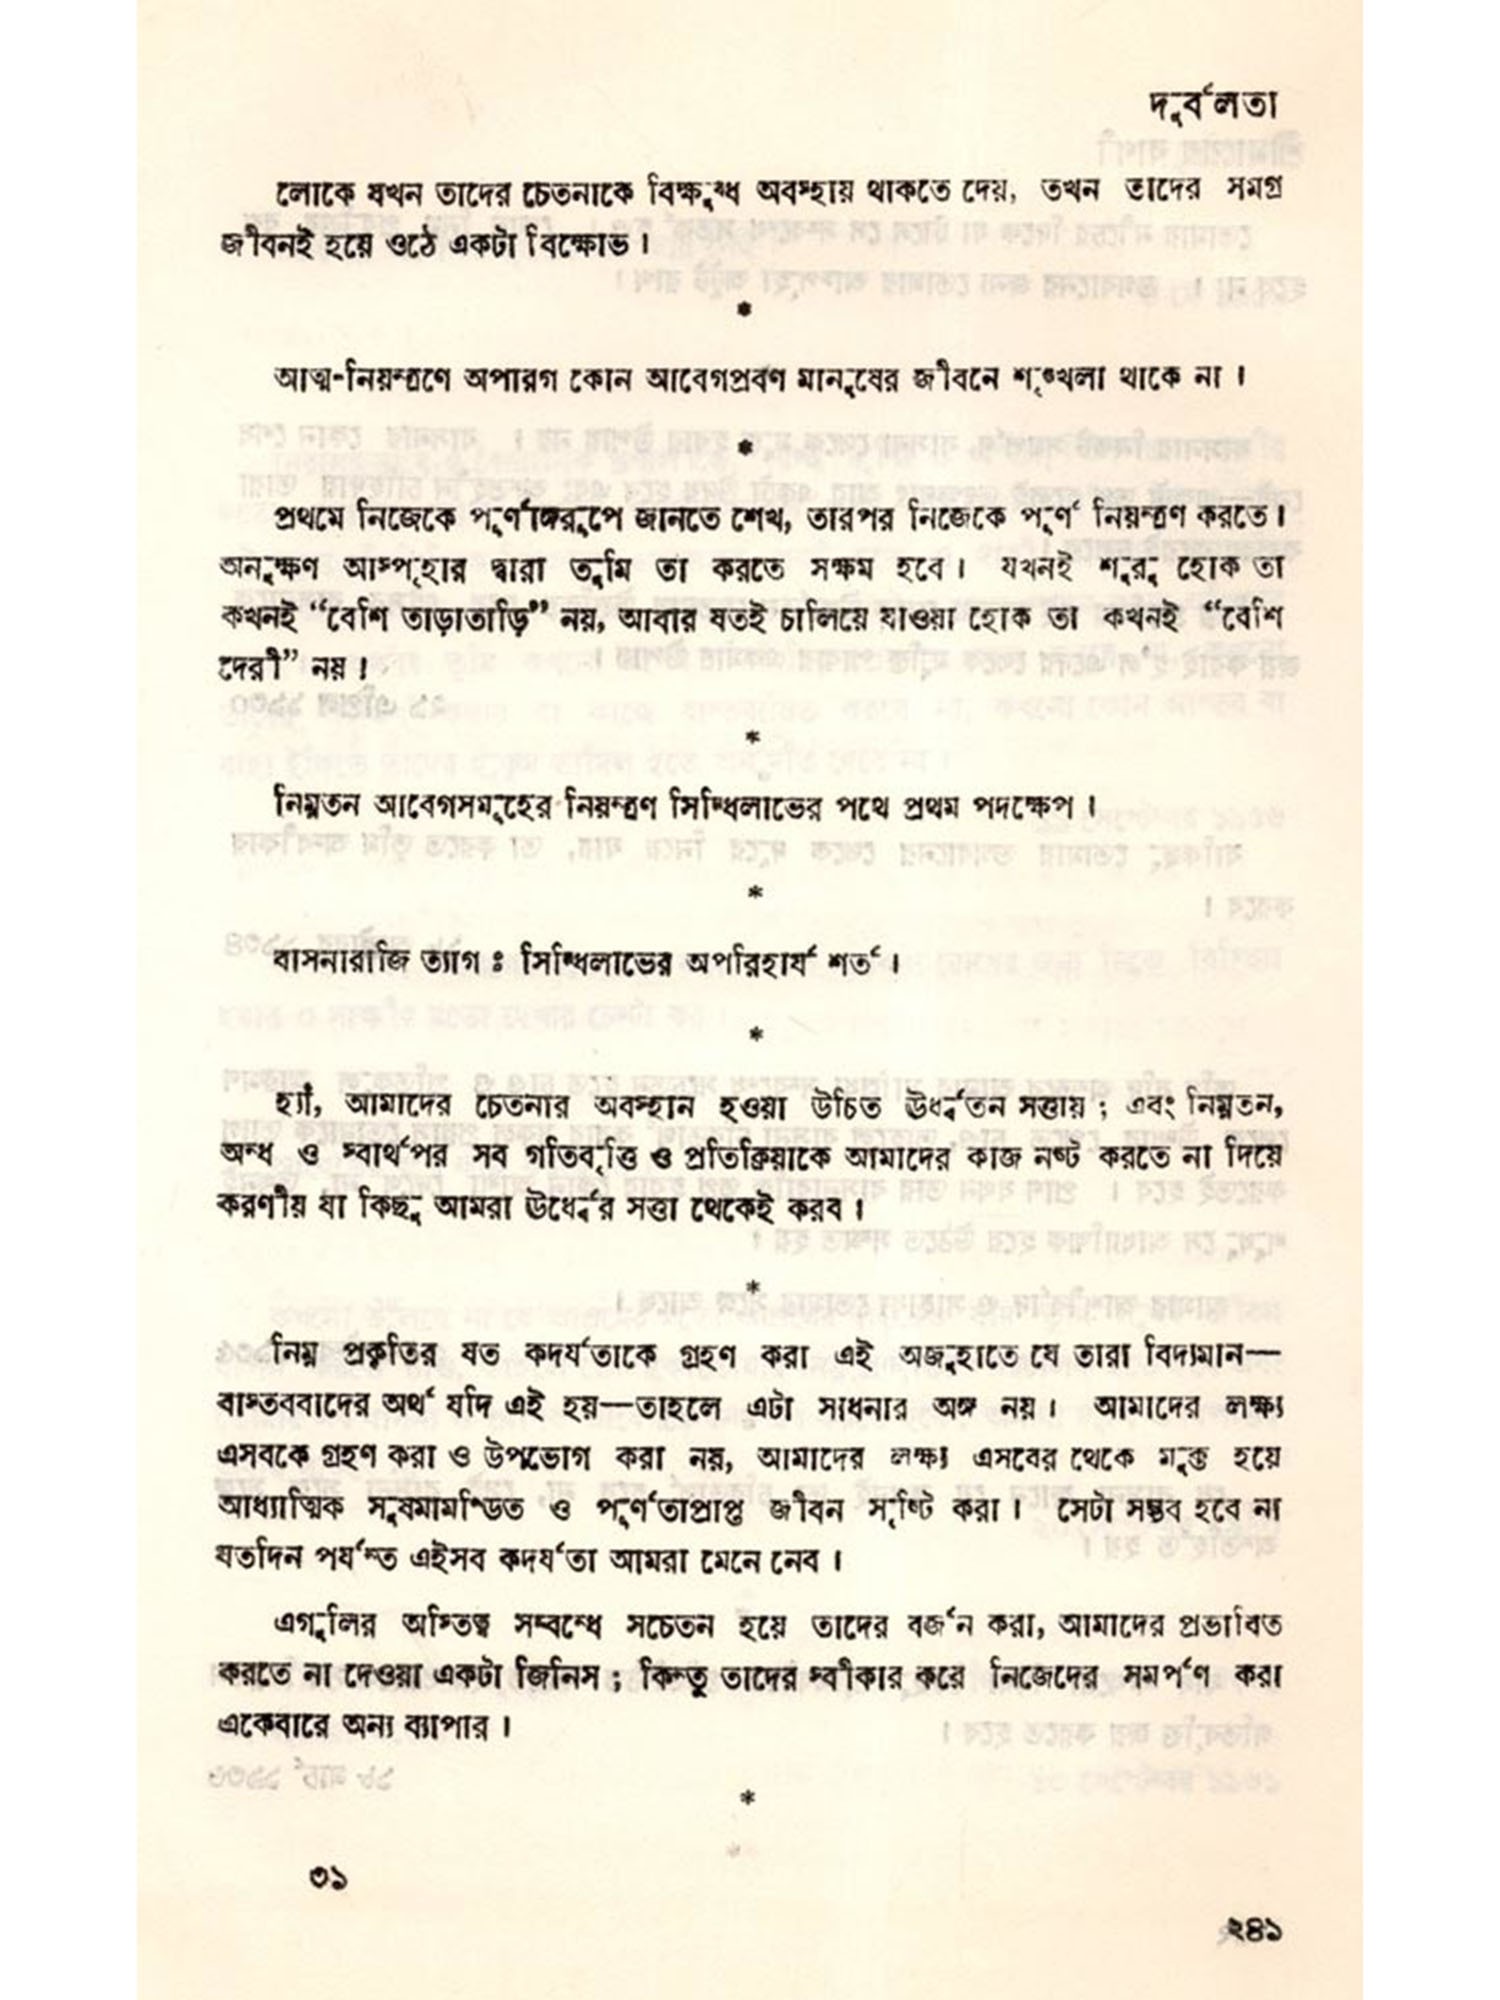 দুর্বলতা
লোকে যখন তাদের চেতনাকে বিক্ষুব্ধ অবস্হায় থাকতে দেয়, তখন তাদের সমগ্র
জীবনই হয়ে ওঠে একটা বিক্ষোভ।
*
আত্ম-নিয়ন্ত্রণে অপারগ কোন আবেগপ্রবণ মানুষের জীবনে শৃঙ্খলা থাকে না।
*
প্রথমে নিজেকে পূর্ণাঙ্গরূপে জানতে শেখ, তারপর নিজেকে পূর্ণ নিয়ন্ত্রণ করতে।
অনুক্ষণ আস্পৃহার দ্বারা তুমি তা করতে সক্ষম হবে। যখনই শুরু হোক তা
কখনই “বেশি তাড়াতাড়ি” নয়, আবার যতই চালিয়ে যাওয়া হোক তা কখনই “বেশি
দেরী” নয়।
*
নিম্নতন আবেগসমূহের নিয়ন্ত্রণ সিদ্ধিলাভের পথে প্রথম পদক্ষেপ।
*
বাসনারাজি ত্যাগ ঃ সিদ্ধিলাভের অপরিহার্য শর্ত।
*
হ্যাঁ, আমাদের চেতনার অবস্হান হওয়া উচিত ঊর্ধ্বতন সত্তায়; এবং নিম্নতন,
অন্ধ ও স্বার্থপর সব গতিবৃত্তি ও প্রতিক্রিয়াকে আমাদের কাজ নষ্ট করতে না দিয়ে
করণীয় যা কিছু আমরা ঊর্ধ্বের সত্তা থেকেই করব।
*
নিম্ন প্রকৃতির যত কদর্যতাকে গ্রহণ করা এই অজুহাতে যে তারা বিদ্যমান—
বাস্তববাদের অর্থ যদি এই হয়—তাহলে এটা সাধনার অঙ্গ নয়। আমাদের লক্ষ্য
এসবকে গ্রহণ করা ও উপভোগ করা নয়, আমাদের লক্ষ্য এসবের থেকে মুক্ত হয়ে
আধ্যাত্মিক সুষমামণ্ডিত ও পূর্ণতাপ্রাপ্ত জীবন সৃষ্টি করা। সেটা সম্ভব হবে না
যতদিন পর্যন্ত এইসব কদর্যতা আমরা মেনে নেব।
এগুলির অস্তিত্ব সম্বন্ধে সচেতন হয়ে তাদের বর্জন করা, আমাদের প্রভাবিত
করতে না দেওয়া একটা জিনিস; কিন্তু তাদের স্বীকার করে নিজেদের সমর্পণ করা
একেবারে অন্য ব্যাপার।
*
৩১
২৪১